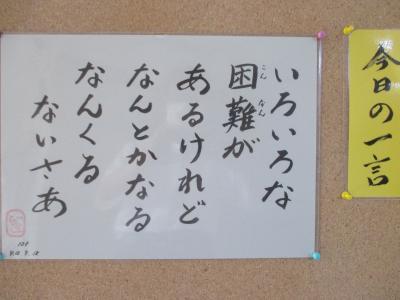 今日の一言
いろいろな
困難が
あるけれど
なんとかなる
なんくる
ないさあ